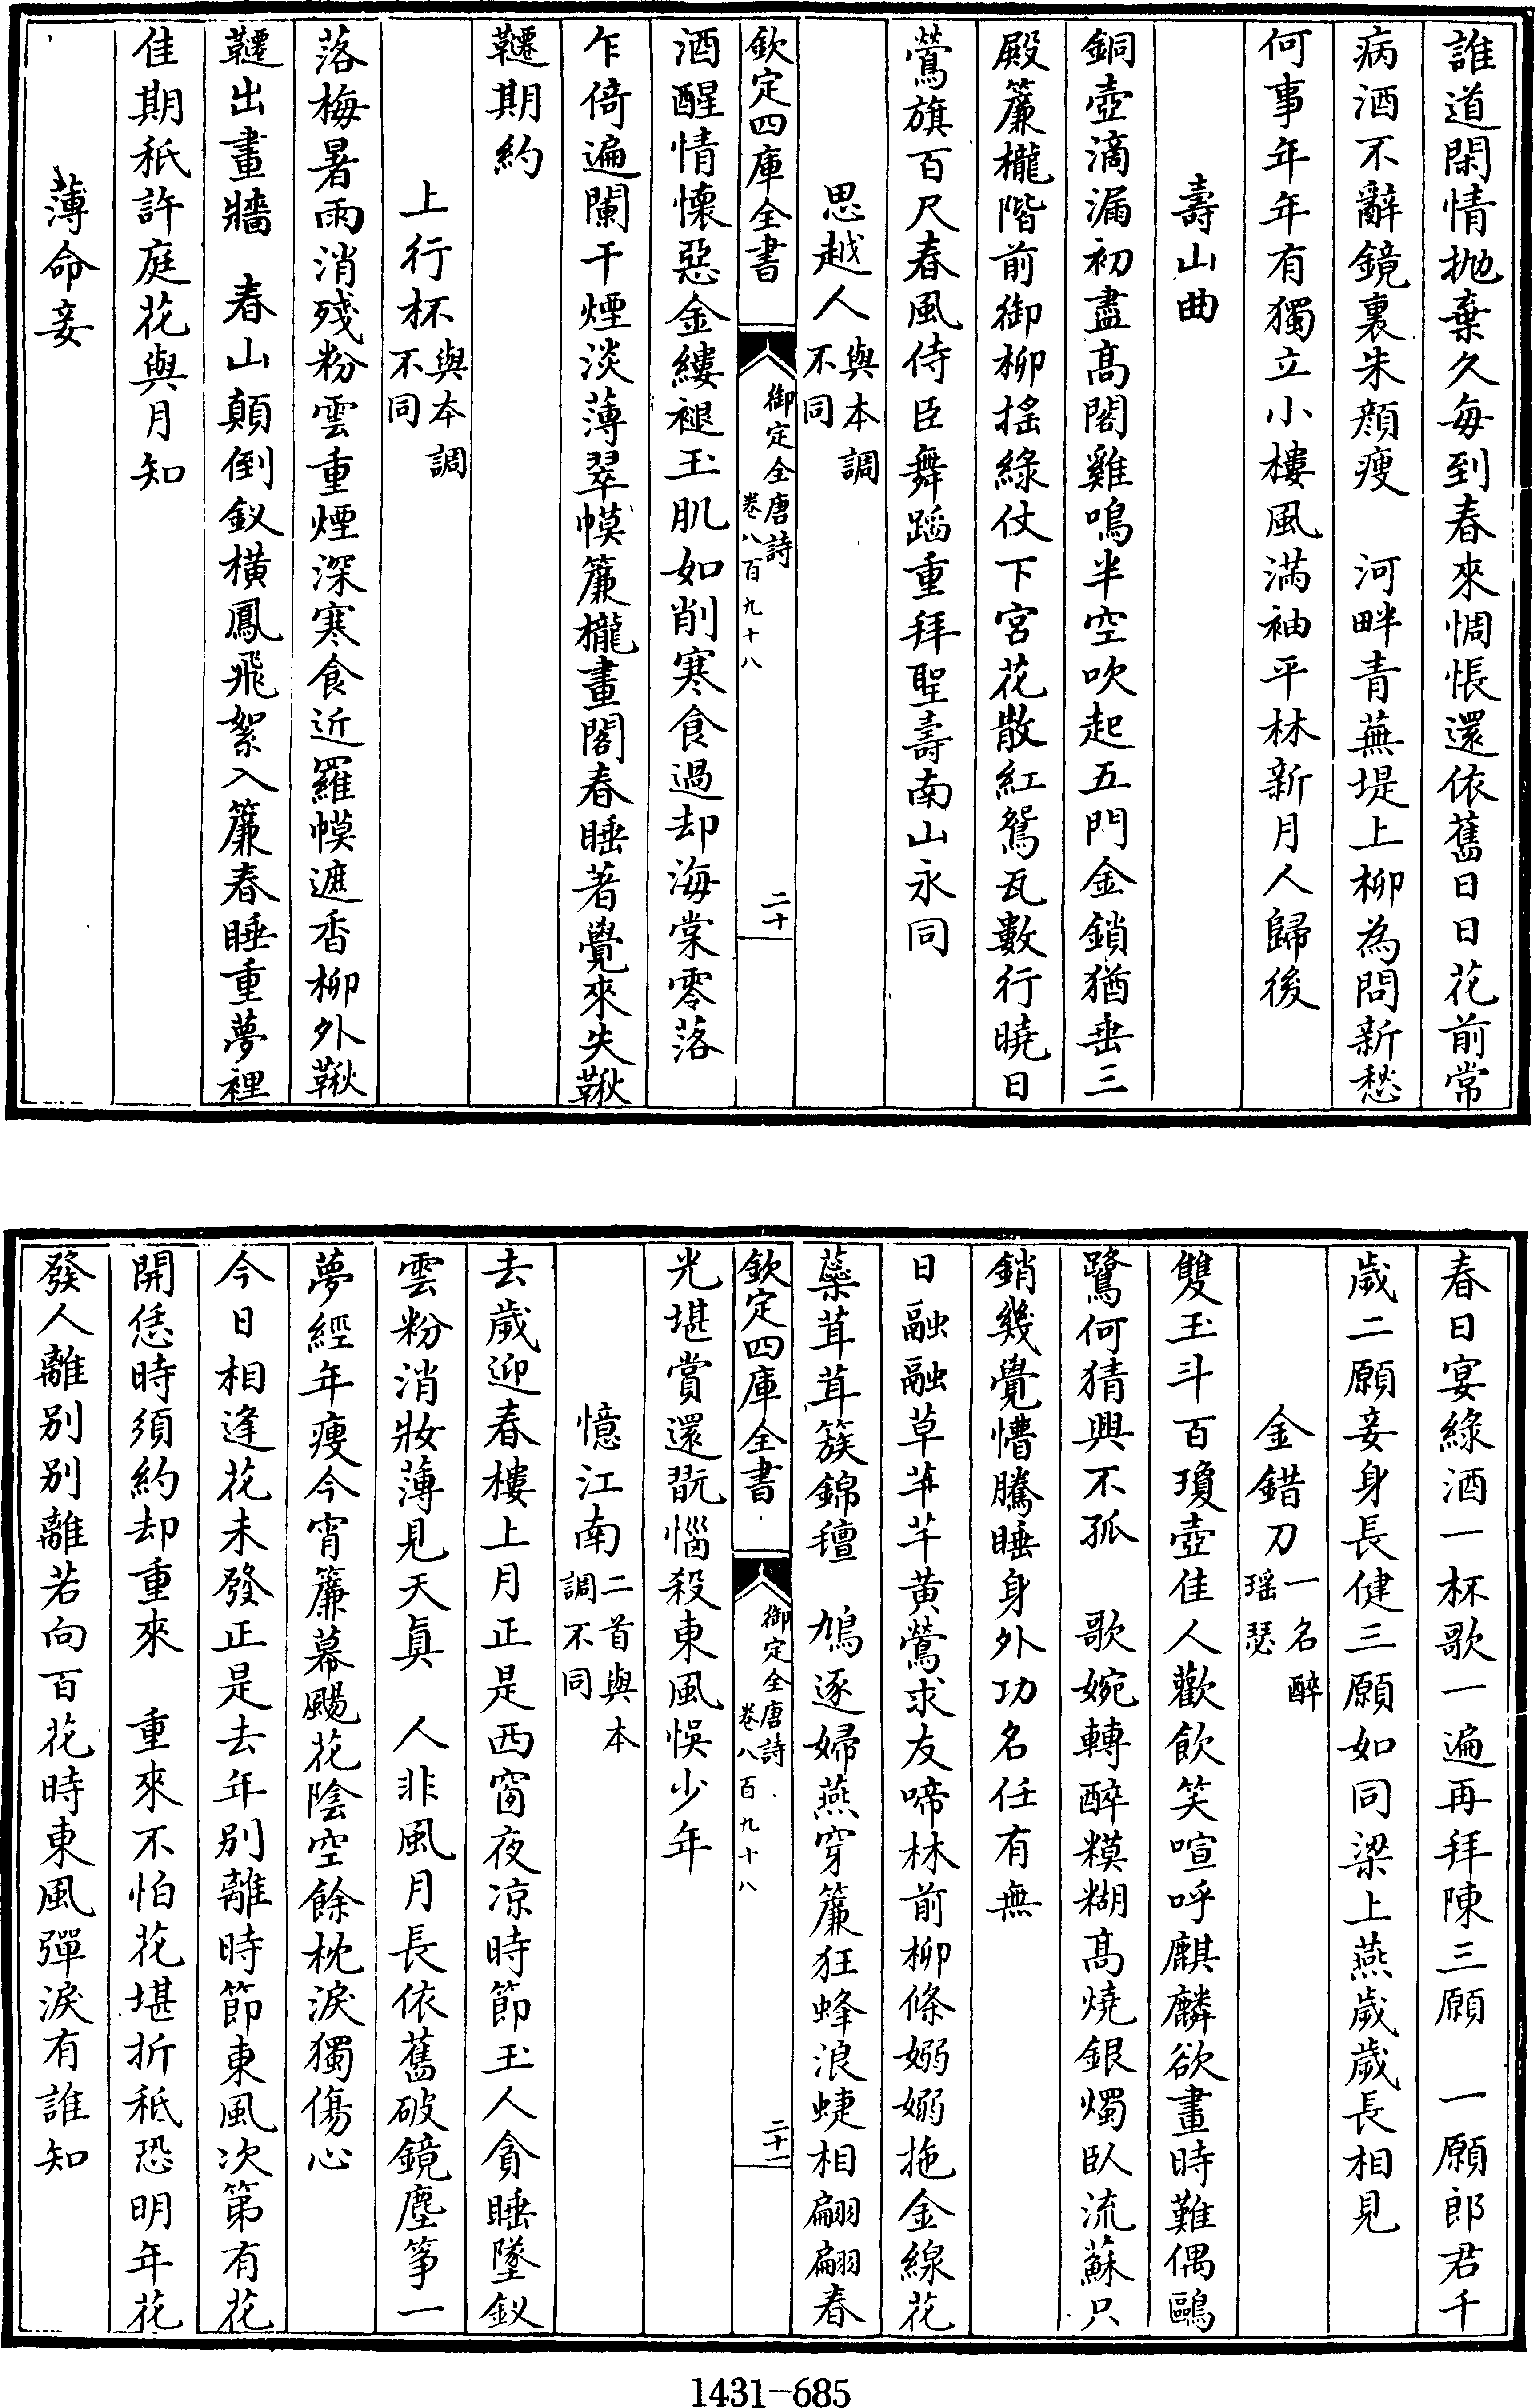 誰道閑情抛棄久每到春來惆悵還依舊日日花前常
病酒不辭鏡裏朱顔瘦　河畔青蕪堤上柳為問新愁
何事年年有獨立小樓風滿袖平林新月人歸後
壽山曲
銅壺滴漏初盡髙閣雞鳴半空吹起五門金鎖猶垂三
殿簾櫳階前御柳揺綠仗下宮花散紅鴛瓦數行曉日
鸞旗百尺春風侍臣舞蹈重拜聖壽南山永同
思越人與本調不同
欽定四庫全書　御定全唐詩卷八百九十八　二十
酒醒情懷惡金縷褪玉肌如削寒食過却海棠零落
乍倚遍闌干煙淡薄翠幙簾櫳畫閣春睡著覺來失鞦
韆期約
上行杯與本調不同
落梅暑雨消殘粉雲重煙深寒食近羅幙遮香柳外鞦
韆出畫牆　春山顛倒釵橫鳳飛絮入簾春睡重夢裡
佳期秖許庭花與月知
薄命妾
春日宴綠酒一杯歌一遍再拜陳三願　一願郎君千
歲二願妾身長健三願如同梁上燕歲歲長相見
金錯刀一名醉瑶瑟
雙玉斗百瓊壺佳人歡飲笑喧呼麒麟欲畫時難偶鷗
鷺何猜興不孤　歌婉轉醉糢糊髙燒銀燭臥流蘇只
銷幾覺懵騰睡身外功名任有無
日融融草芊芊黄鶯求友啼林前柳條嫋嫋拖金線花
蘂茸茸簇錦氊　鳩逐婦燕穿簾狂蜂浪蜨相翩翩春
光堪賞還翫惱殺東風悞少年
欽定四庫全書　御定全唐詩卷八百九十八　二十一
憶江南二首與本調不同
去歲迎春樓上月正是西窗夜凉時節玉人貪睡墜釵
雲粉消妝薄見天真　人非風月長依舊破鏡塵筝一
夢經年瘦今宵簾幕颺花陰空餘枕淚獨傷心
今日相逢花未發正是去年别離時節東風次第有花
開恁時須約却重來　重來不怕花堪折秪恐明年花
發人離别别離若向百花時東風彈淚有誰知
1431-685